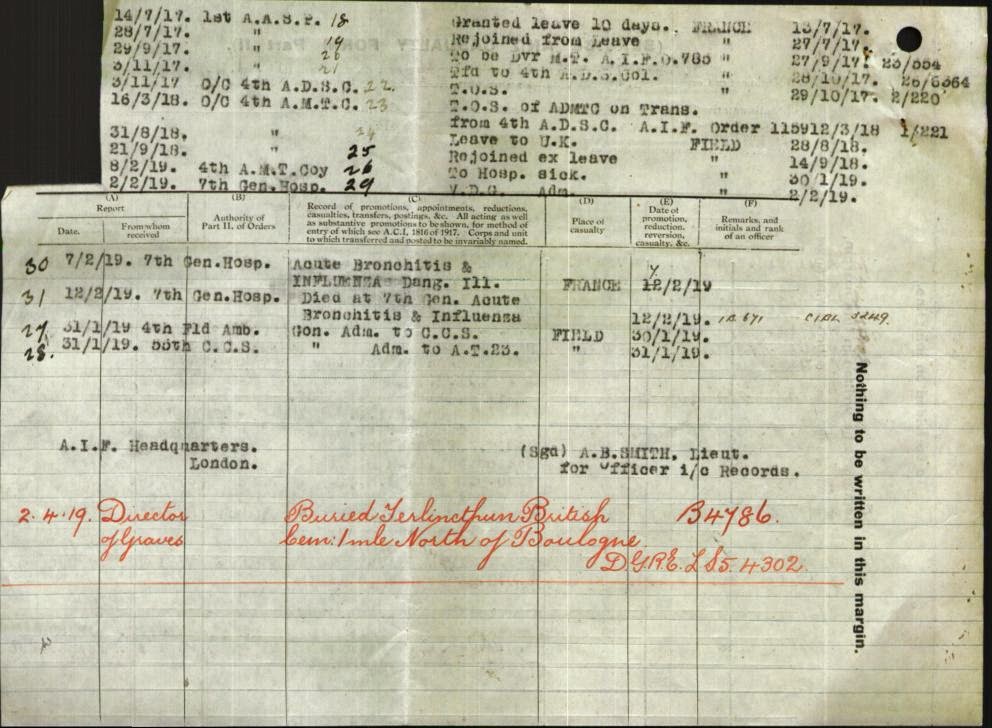 14/7/17. 1st A.A.S.P. 18 Granted leave 10 days. FRANCE 13/7/17.
28/7/17. " 19 Rejoined from Leave " 27/7/17.
29/9/17. " 20 To be Dvr M.T. A.I.F.O.785 " 27/9/17. 23/554
3/11/17. " 21 Tfd to 4th A.D.S.Col. " 28/10/17. 26/6364
3/11/17 O/C 4th A.D.S.C. 22. T.O.S. " 29/10/17. 2/220
16/3/18. O/C 4th A.M.T.C. 23 T.O.S. of ADMTC on Trans.
from 4th A.D.S.C. A.I.F. Order 115912/3/18 1/221
31/8/18. " 24 Leave to U.K. FIELD 28/8/18.
21/9/18. 25 Rejoined ex leave " 14/9/18.
8/2/19. 4th A.M.T.Coy 26 To Hosp. sick. " 30/1/19.
2/2/19. 7th Gen.Hosp. 29 V.D.G. Adm. " 2/2/19.
(A) (B) (C) (D) (E) (F)
Report
Date. From whom received
Authority of Part II. of Orders
Record of promotions, appointments, reductions,
casualties, transfers, postings, &c. All acting as well
as substantive promotions to be shown, for method of
entry of which see A.C.I. 1816 of 1917. Corps and unit
to which transferred and posted to be invariably named.
Place of casualty
Date of promotion, reduction, reversion, casualty, &c.
Remarks, and initials and rank of an officer
30 7/2/19. 7th Gen.Hosp. Acute Bronchitis &
INFLUENZA Dang. Ill. FRANCE 12/2/19
31 12/2/19. 7th Gen.Hosp. Died at 7th Gen. Acute
Bronchitis & Influenza 12/2/19.
27. 31/1/19 4th Fld Amb. Gon. Adm. to C.C.S. FIELD 30/1/19.
28. 31/1/19. 55th C.C.S. " Adm. to A.T.23. " 31/1/19.
A.I.F. Headquarters.
London.
(Sgd) A.B.SMITH, Lieut.
for Officer i/c Records.
2.4.19. Director Buried Terlincthun British B4786.
of Graves Cem: 1 mle North of Boulogne
D.G.R.E. L S5. 4302
Nothing to be written in this margin.